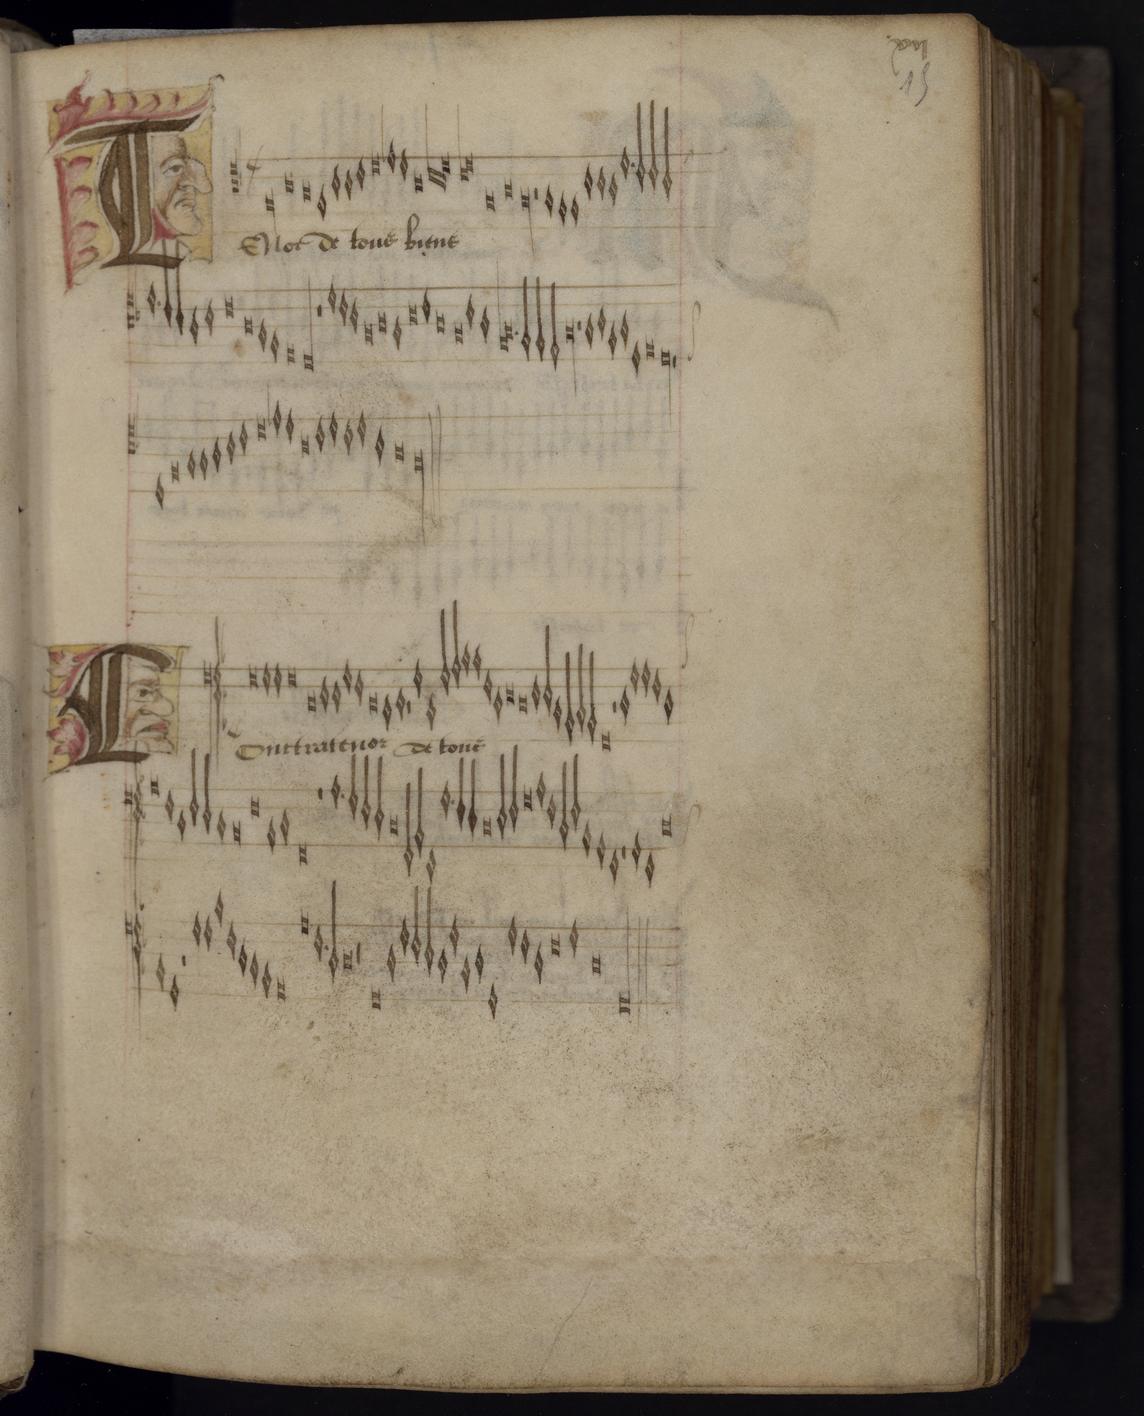 Tenor De tous biens
Contratenor De tous